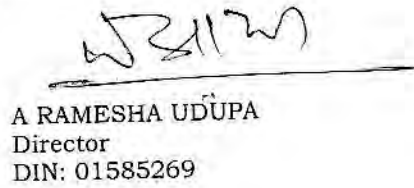 A RAMESHA UDUPA
Director
DIN: 01585269